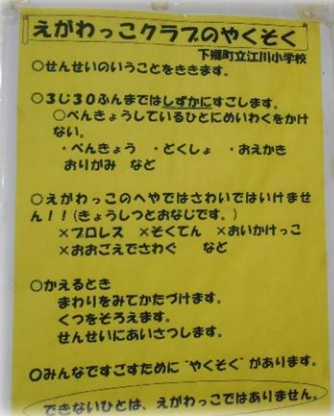 えがわっこクラブのやくそく
下郷町立江川小学校
○せんせいのいうことをききます。
○3じ30ぷんまではしずかにすごします。
○べんきょうしているひとにめいわくをかけ
ない。
・べんきょう ・どくしょ ・おえかき
おりがみ など
○えがわっこのへやではさわいではいけませ
ん!!(きょうしつとおなじです。)
×プロレス ×そくてん ×おいかけっこ
×おおごえでさわぐ など
○かえるとき
まわりをみてかたづけます。
くつをそろえます。
せんせいにあいさつします。
○みんなですごすために“やくそく”があります。
できないひとは、えがわっこではありません。